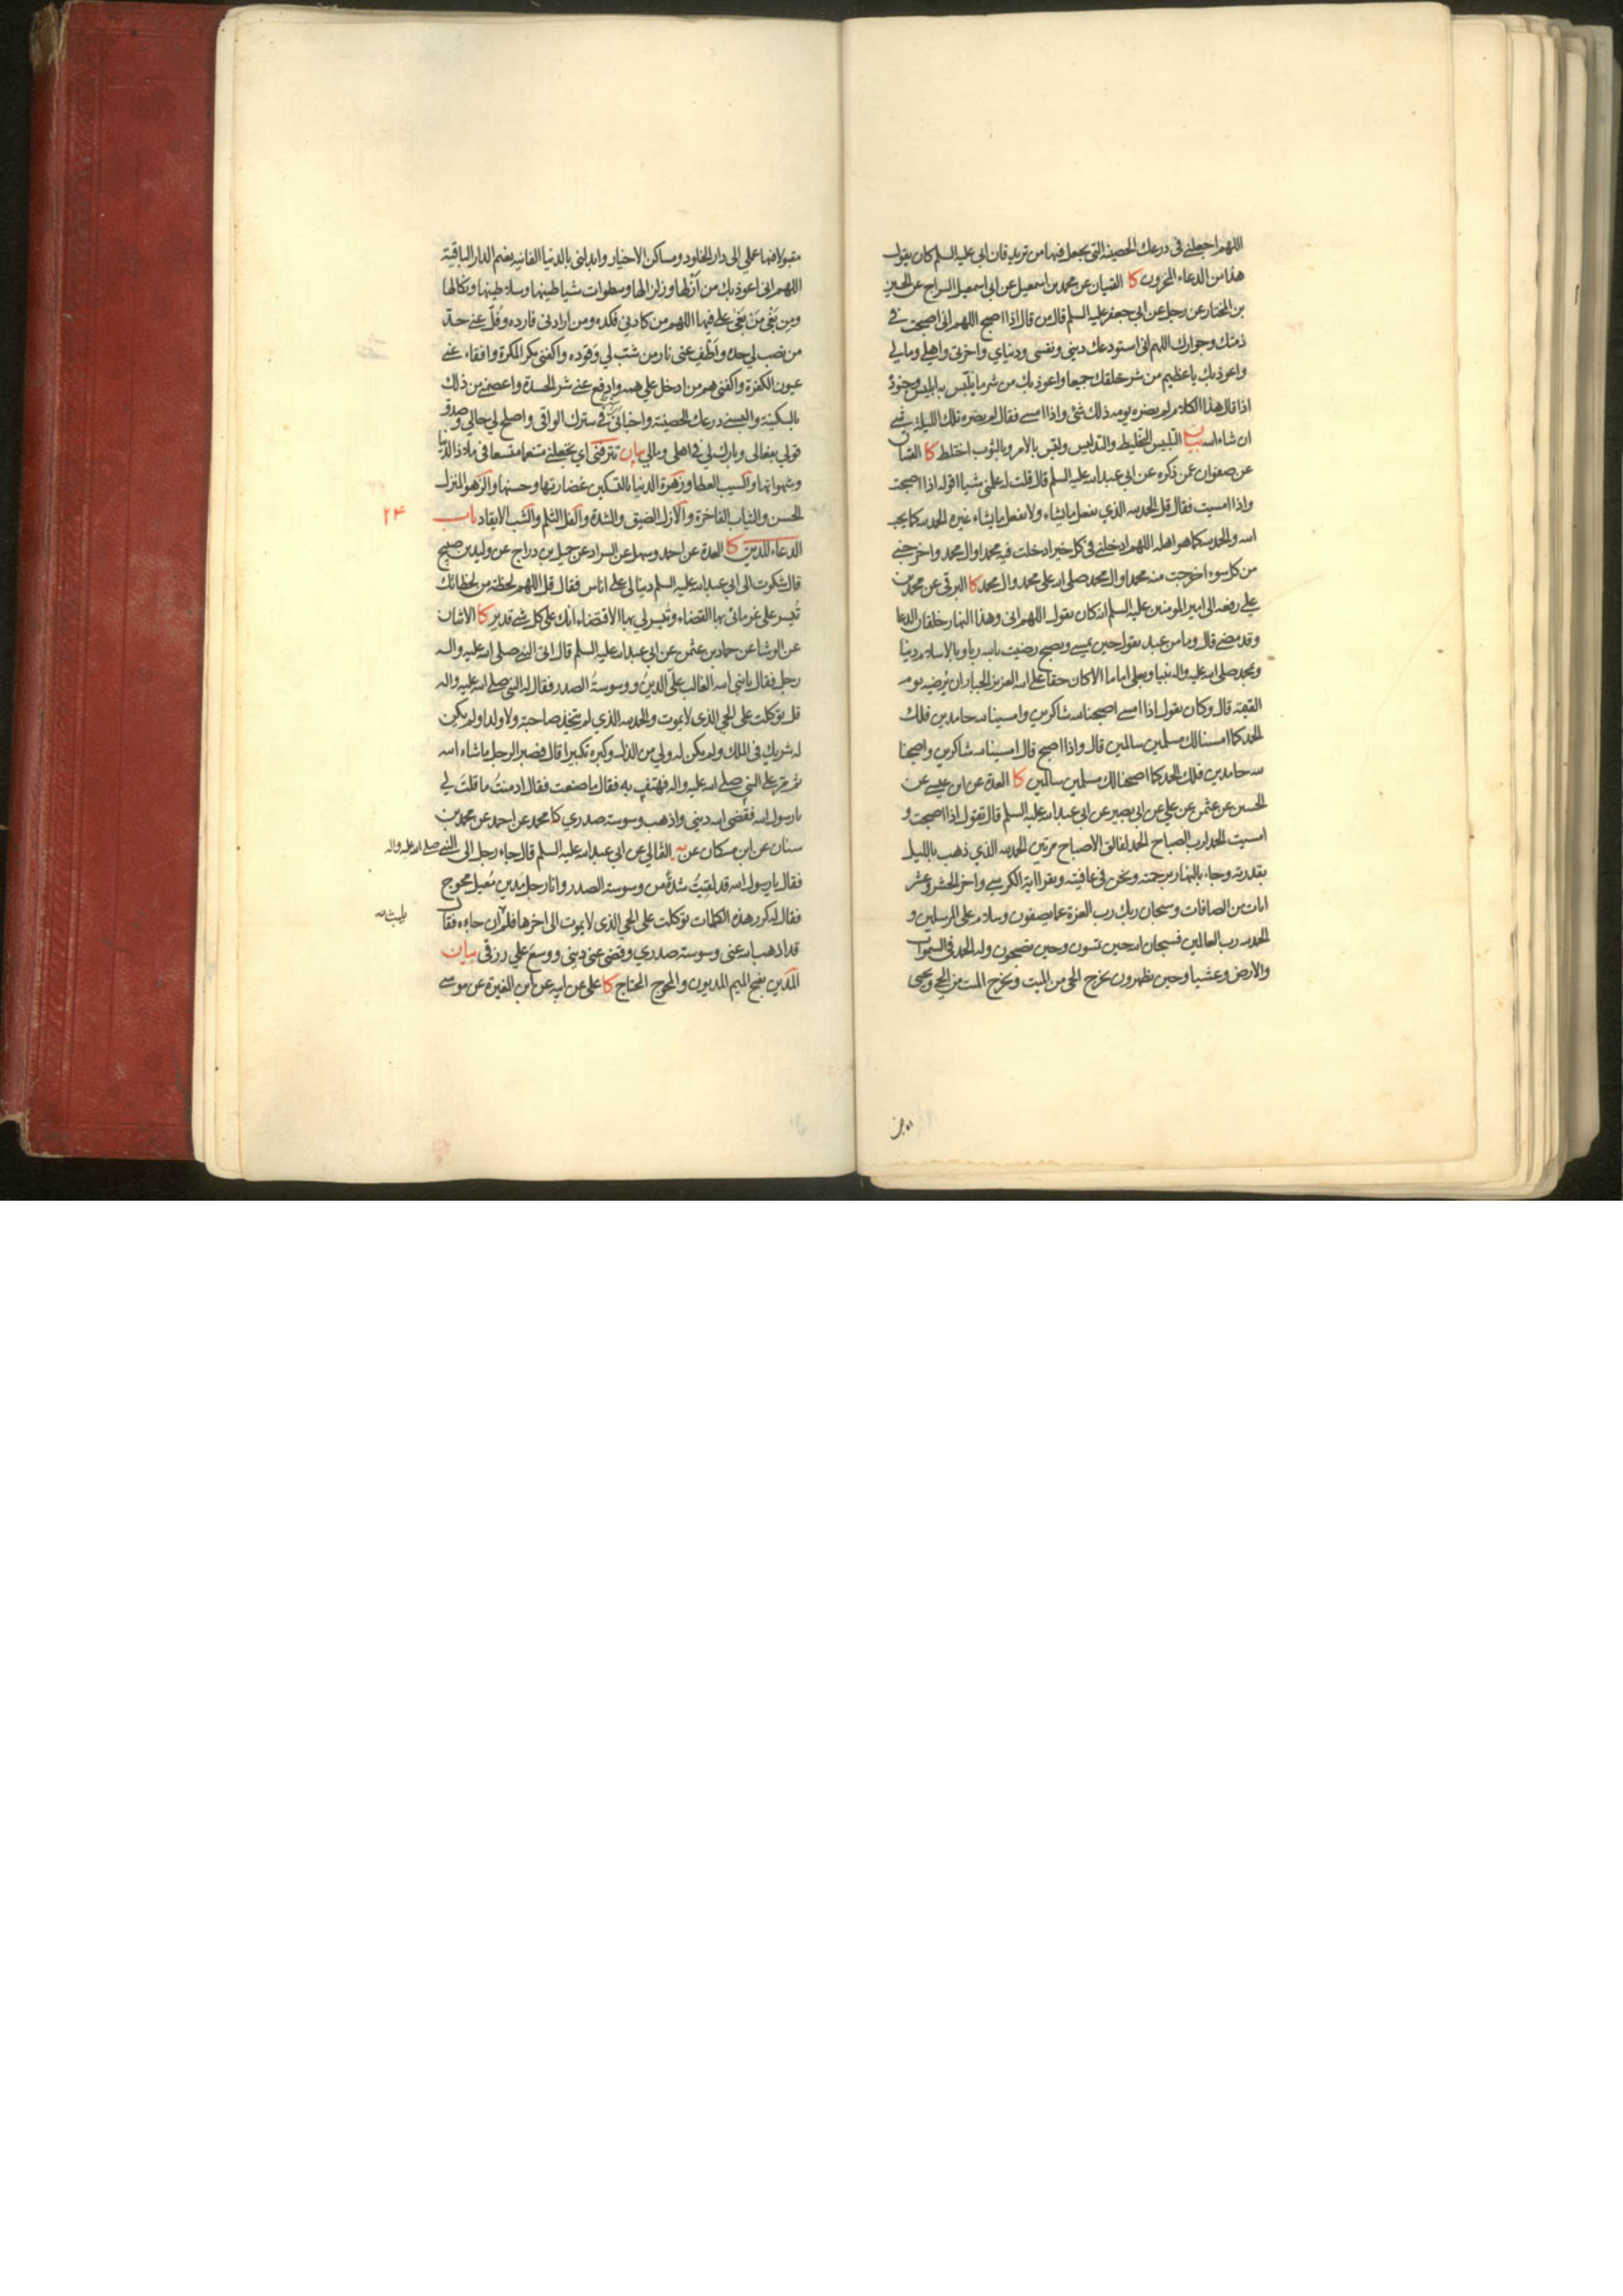 اللهم اجعلني في درعك الحصينة التي تجعل فيها من تريد فان ابي عليه السلم كان يقول
هذا من الدعاء المخزون كا القميان عن محمد بن اسمعيل عن ابي اسمعيل السراج عن الحسين
بن المختار عن رجل عن ابي جعفر عليه السلم قال من قال اذا اصبح اللهم اني اصبحت في
ذمتك وجوارك اللهم اني استودعك ديني ونفسي ودنياي واخرتي واهلي ومالي
واعوذ بك يا عظيم من شر خلقك جميعا واعوذ بك من شر ما يلبس به ابليس وجنوده
اذا قال هذا الكلام لم يضره يومه ذلك شئ واذا امسى فقال لم يضره تلك الليلة شئ
ان شاء الله بيان التلبيس التخليط والتدليس ولبس بالامر وبالثوب اختلط كا القميان
عن صفوان عمن ذكره عن ابي عبد الله عليه السلم قال قلت له علمني شيئا اقوله اذا اصبحت
واذا امسيت فقال قل الحمد لله الذي يفعل ما يشاء ولا يفعل ما يشاء غيره الحمد لله كما يحب
الله والحمد لله كما هو اهله اللهم ادخلني في كل خير ادخلت فيه محمدا وال محمد واخرجني
من كل سوء اخرجت منه محمدا وال محمد صلى الله على محمد وال محمد كا البرقي عن محمد بن
علي رفعه الى امير المومنين عليه السلم انه كان يقول اللهم اني وهذا النهار خلقان الدعا
وقد مضى قال وما من عبد يقول حين يمسي ويصبح رضيت بالله ربا وبالاسلام دينا
وبمحمد صلى الله عليه واله نبيا وبعلي اماما الا كان حقا على الله العزيز الجبار ان يرضيه يوم
القيمة قال وكان يقول اذا امسى اصبحنا لله شاكرين وامسينا لله حامدين فلك
الحمد كما امسينا لك مسلمين سالمين قال واذا اصبح قال امسينا لله شاكرين واصبحنا
لله حامدين فلك الحمد كما اصبحنا لك مسلمين سالمين كا العدة عن ابن عيسى عن
الحسين عن عثمن عن علي عن ابي بصير عن ابي عبد الله عليه السلم قال تقول اذا اصبحت و
امسيت الحمد لرب الصباح الحمد لفالق الاصباح مرتين الحمد لله الذي ذهب بالليل
بقدرته وجاء بالنهار برحمته ونحن في عافيته ويقرا اية الكرسي واخر الحشر وعشر
ايات من الصافات وسبحان ربك رب العزة عما يصفون وسلام على المرسلين و
الحمد لله رب العالمين فسبحان الله حين تمسون وحين تصبحون وله الحمد في السموات
والارض وعشيا وحين تظهرون يخرج الحي من الميت ويخرج الميت من الحي ويحيي
مقبولا فيها عملي الى دار الخلود ومساكن الاخيار وابدلني بالدنيا الفانية نعيم الدار الباقية
اللهم اني اعوذ بك من ازلها وزلزالها وسطوات شياطينها وسلاطينها ونكالها
ومن بغي من بغى علي فيها اللهم من كادني فكده ومن ارادني فارده وفل عني حد
من نصب لي حده واطف عني نار من شب لي وقوده واكفني مكر المكرة وافقاء عني
عيون الكفرة واكفني هم من ادخل علي همه وادفع عني شر الحسدة واعصمني من ذلك
بالسكينة والبسني درعك الحصينة واخباني في سترك الواقي واصلح لي حالي وصدق
قولي بفعالي وبارك لي في اهلي ومالي بيان تترفني اي تجعلني متنعما متسعا في ملاذ الدنيا
وشهواتها والسيب العطا وزهرة الدنيا بالتسكين غضارتها وحسنها والزهو المنزل
الحسن والثياب الفاخرة والازل الضيق والشدة والفل الثلم والشب الايقاد باب
۲۴
الدعاء للدين كا العدة عن احمد وسهل عن السراد عن جميل بن دراج عن وليد بن صبيح
قال شكوت الى ابي عبد الله عليه السلم دينا لي على اناس فقال قل اللهم لحظة من لحظاتك
تيسر على غرمائي بها القضاء وتيسر لي بها الاقتضاء انك على كل شئ قدير كا الاثنان
عن الوشا عن حماد بن عثمن عن ابي عبد الله عليه السلم قال اتى النبي صلى الله عليه واله
رجل فقال يا نبي الله الغالب علي الدين ووسوسة الصدر فقال له النبي صلى الله عليه واله
قل توكلت على الحي الذي لا يموت والحمد لله الذي لم يتخذ صاحبة ولا ولدا ولم يكن
له شريك في الملك ولم يكن له ولي من الذل وكبره تكبيرا قال فصبر الرجل ما شاء الله
ثم مر على النبي صلى الله عليه واله فهتف به فقال ما صنعت فقال ادمنت ما قلت لي
يا رسول الله فقضى الله ديني واذهب وسوسة صدري كا محمد عن احمد عن محمد بن
سنان عن ابن مسكان عن الثمالي عن ابي عبد الله عليه السلم قال جاء رجل الى النبي صلى الله عليه واله
فقال يا رسول الله قد لقيت شدة من وسوسة الصدر وانا رجل مدين معيل محوج
فقال له كرر هذه الكلمات توكلت على الحي الذي لا يموت الى اخرها فلم ان جاءه فقال
يلبث
قد اذهب الله عني وسوسة صدري وقضى عني ديني ووسع علي رزقي بيان
المدين بفتح الميم المديون والمحوج المحتاج كا علي عن ابيه عن ابن المغيرة عن موسى